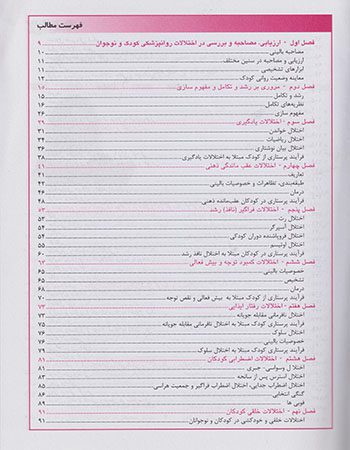 فهرست مطالب
فصل اول - ارزیابی، مصاحبه و بررسی در اختلالات روانپزشکی کودک و نوجوان ۹
مصاحبه بالینی
ارزیابی و مصاحبه در سنین مختلف ۱۱
ابزارهای تشخیصی
معاینه وضعیت روانی کودک ۱۳
فصل دوم - مروری بر رشد و تکامل و مفهوم سازی ۱۵
رشد و تکامل ۱۵
نظریه‌های تکامل ۱۶
مفهوم سازی ۲۶
فصل سوم - اختلالات یادگیری
اختلال خواندن ۳۱
اختلال ریاضیات
اختلال بیان نوشتاری ۳۶
فرآیند پرستاری از کودک مبتلا به اختلالات یادگیری ۳۸
فصل چهارم - اختلالات عقب ماندگی ذهنی ۴۱
تعاریف ۴۱
طبقه‌بندی، تظاهرات و خصوصیات بالینی ۴۳
درمان ۴۶
فرآیند پرستاری در کودکان عقب‌مانده ذهنی ۴۸
فصل پنجم - اختلالات فراگیر (نافذ) رشد ۵۳
اختلال رت ۵۴
اختلال آسپرگر ۵۴
اختلال فروپاشنده دوران کودکی ۵۴
اختلال اوتیسم ۵۵
فرآیند پرستاری در کودکان مبتلا به اختلال نافذ رشد ۶۰
فصل ششم - اختلالات کمبود توجه و بیش فعالی
خصوصیات بالینی ۶۵
تشخیص ۶۵
درمان ۶۸
فرآیند پرستاری از کودک مبتلا به بیش فعالی و نقص توجه ۷۰
فصل هفتم - اختلالات رفتار ایذایی ۷۳
اختلال نافرمانی مقابله جویانه ۷۳
فرآیند پرستاری کودک مبتلا به اختلال نافرمانی مقابله جویانه ۷۵
اختلال سلوک ۷۶
خصوصیات بالینی ۷۶
فرآیند پرستاری کودک مبتلا به اختلال سلوک ۷۹
فصل هشتم - اختلالات اضطرابی کودکان ۸۱
اختلال وسواسی- جبری ۸۱
اختلال استرس پس از سانحه ۸۳
اختلال اضطراب جدایی، اختلال اضطراب فراگیر و جمعیت هراسی ۸۵
گنگی انتخابی ۸۶
فوبی ها ۸۹
فصل نهم - اختلالات خلقی کودکان ۹۱
اختلالات خلقی و خودکشی در کودکان و نوجوانان ۹۱